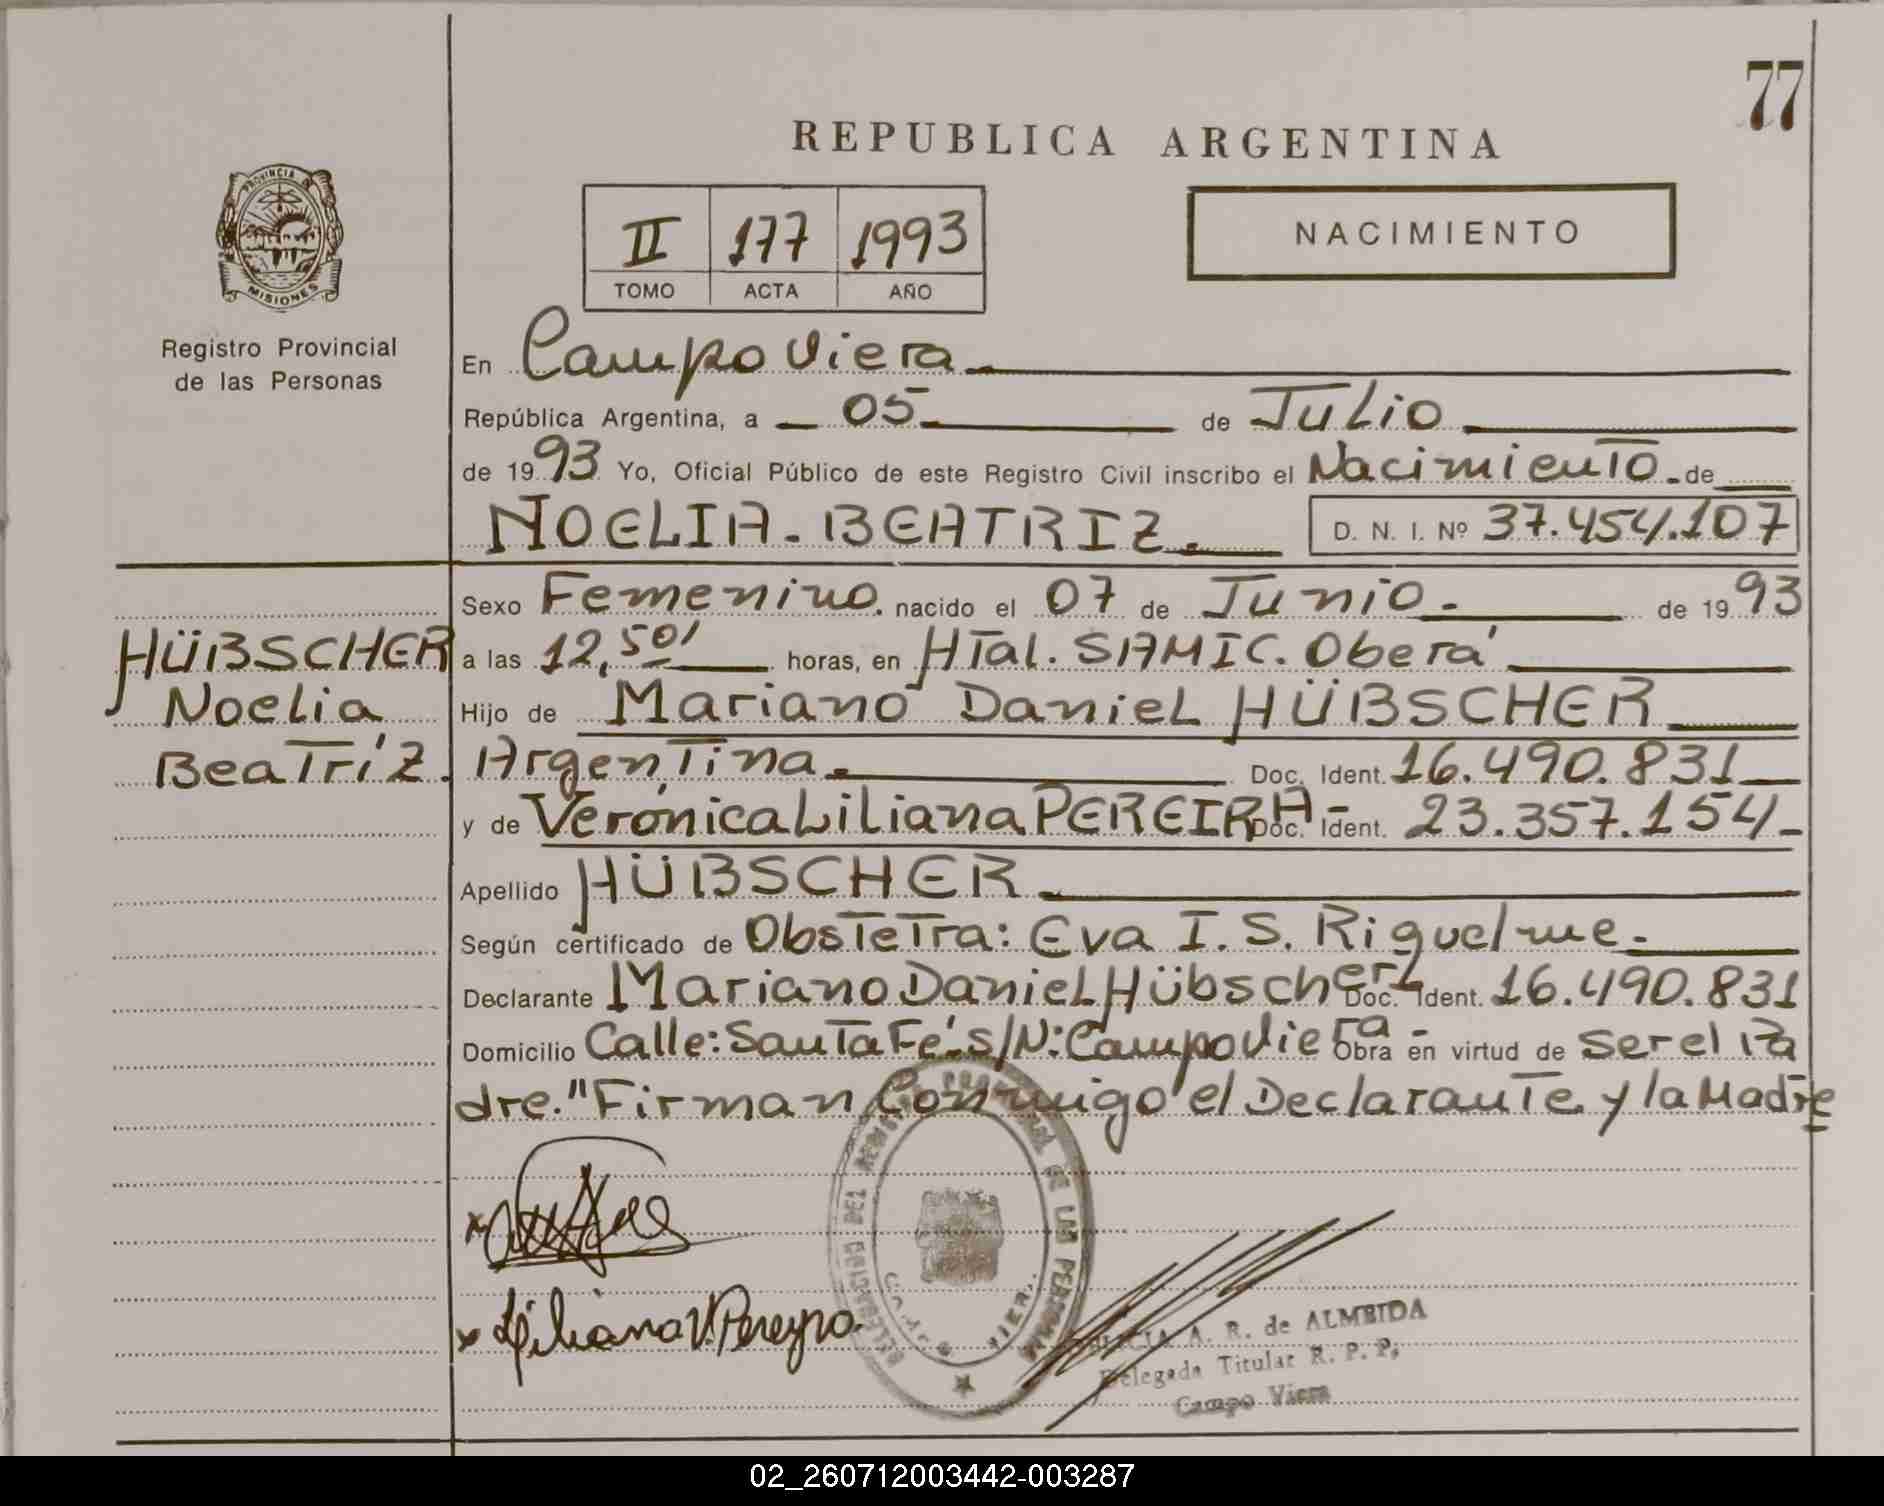 77
REPUBLICA ARGENTINA
PROVINCIA DE MISIONES
Registro Provincial
de las Personas
II 177 1993
TOMO ACTA AÑO
NACIMIENTO
En Campo Viera
República Argentina, a 05 de Julio
de 1993 Yo, Oficial Público de este Registro Civil inscribo el Nacimiento de
NOELIA BEATRIZ. D. N. I. Nº 37.454.107
HÜBSCHER
Noelia
Beatríz.
Sexo Femenino. nacido el 07 de Junio. de 1993
a las 12,50' horas, en HTal. SAMIC. Oberá
Hijo de Mariano Daniel HÜBSCHER
Argentina. Doc. Ident. 16.490.831
y de Verónica Liliana PEREIRA- Doc. Ident. 23.357.154-
Apellido HÜBSCHER
Según certificado de Obstetra: Eva I. S. Riquelme.
Declarante Mariano Daniel Hübscher Doc. Ident. 16.490.831
Domicilio Calle: Santa Fé s/N: Campo Viera - Obra en virtud de ser el Pa
dre." Firman Conmigo el Declarante y la Madre
Liliana V. Pereyra.
DELEGACION DEL REGISTRO PROVINCIAL DE LAS PERSONAS
CAMPO VIERA
A. R. de ALMEIDA
Delegada Titular R. P. P.
Campo Viera
02_260712003442-003287